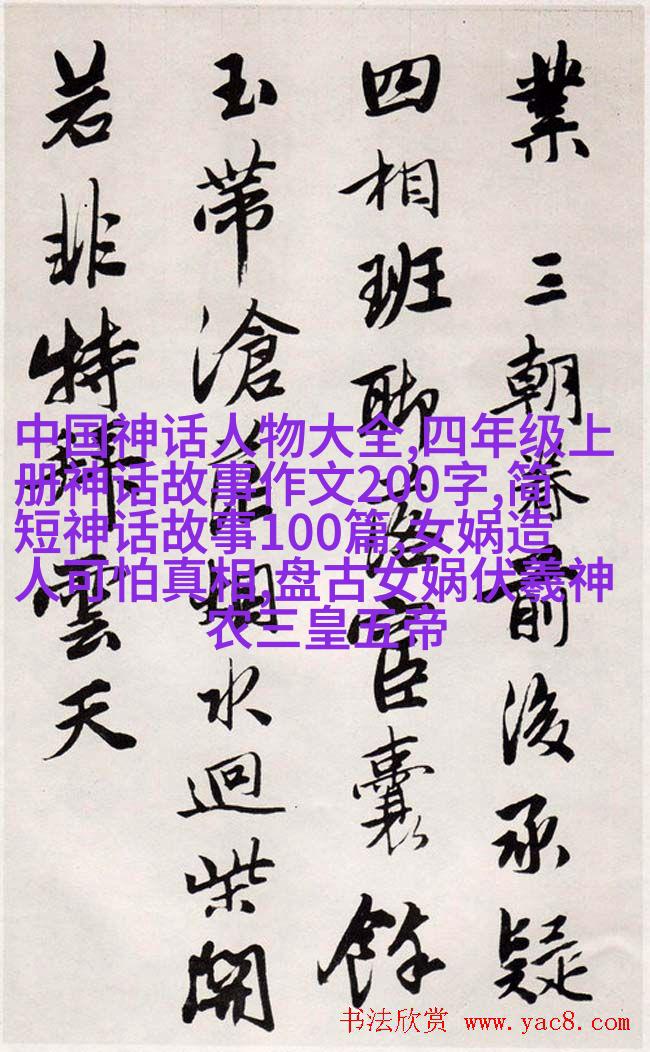 業 三朝眷前後承疑
四相班聯宦臣囊餘
玉帶滄水迴柴開
若非特雲天
中国神话人物大全,四年级上
册神话故事作文200字,简
短神话故事100篇,女娲造
人可怕真相,盘古女娲伏羲神
农三皇五帝
书法欣赏 www.yac8.com